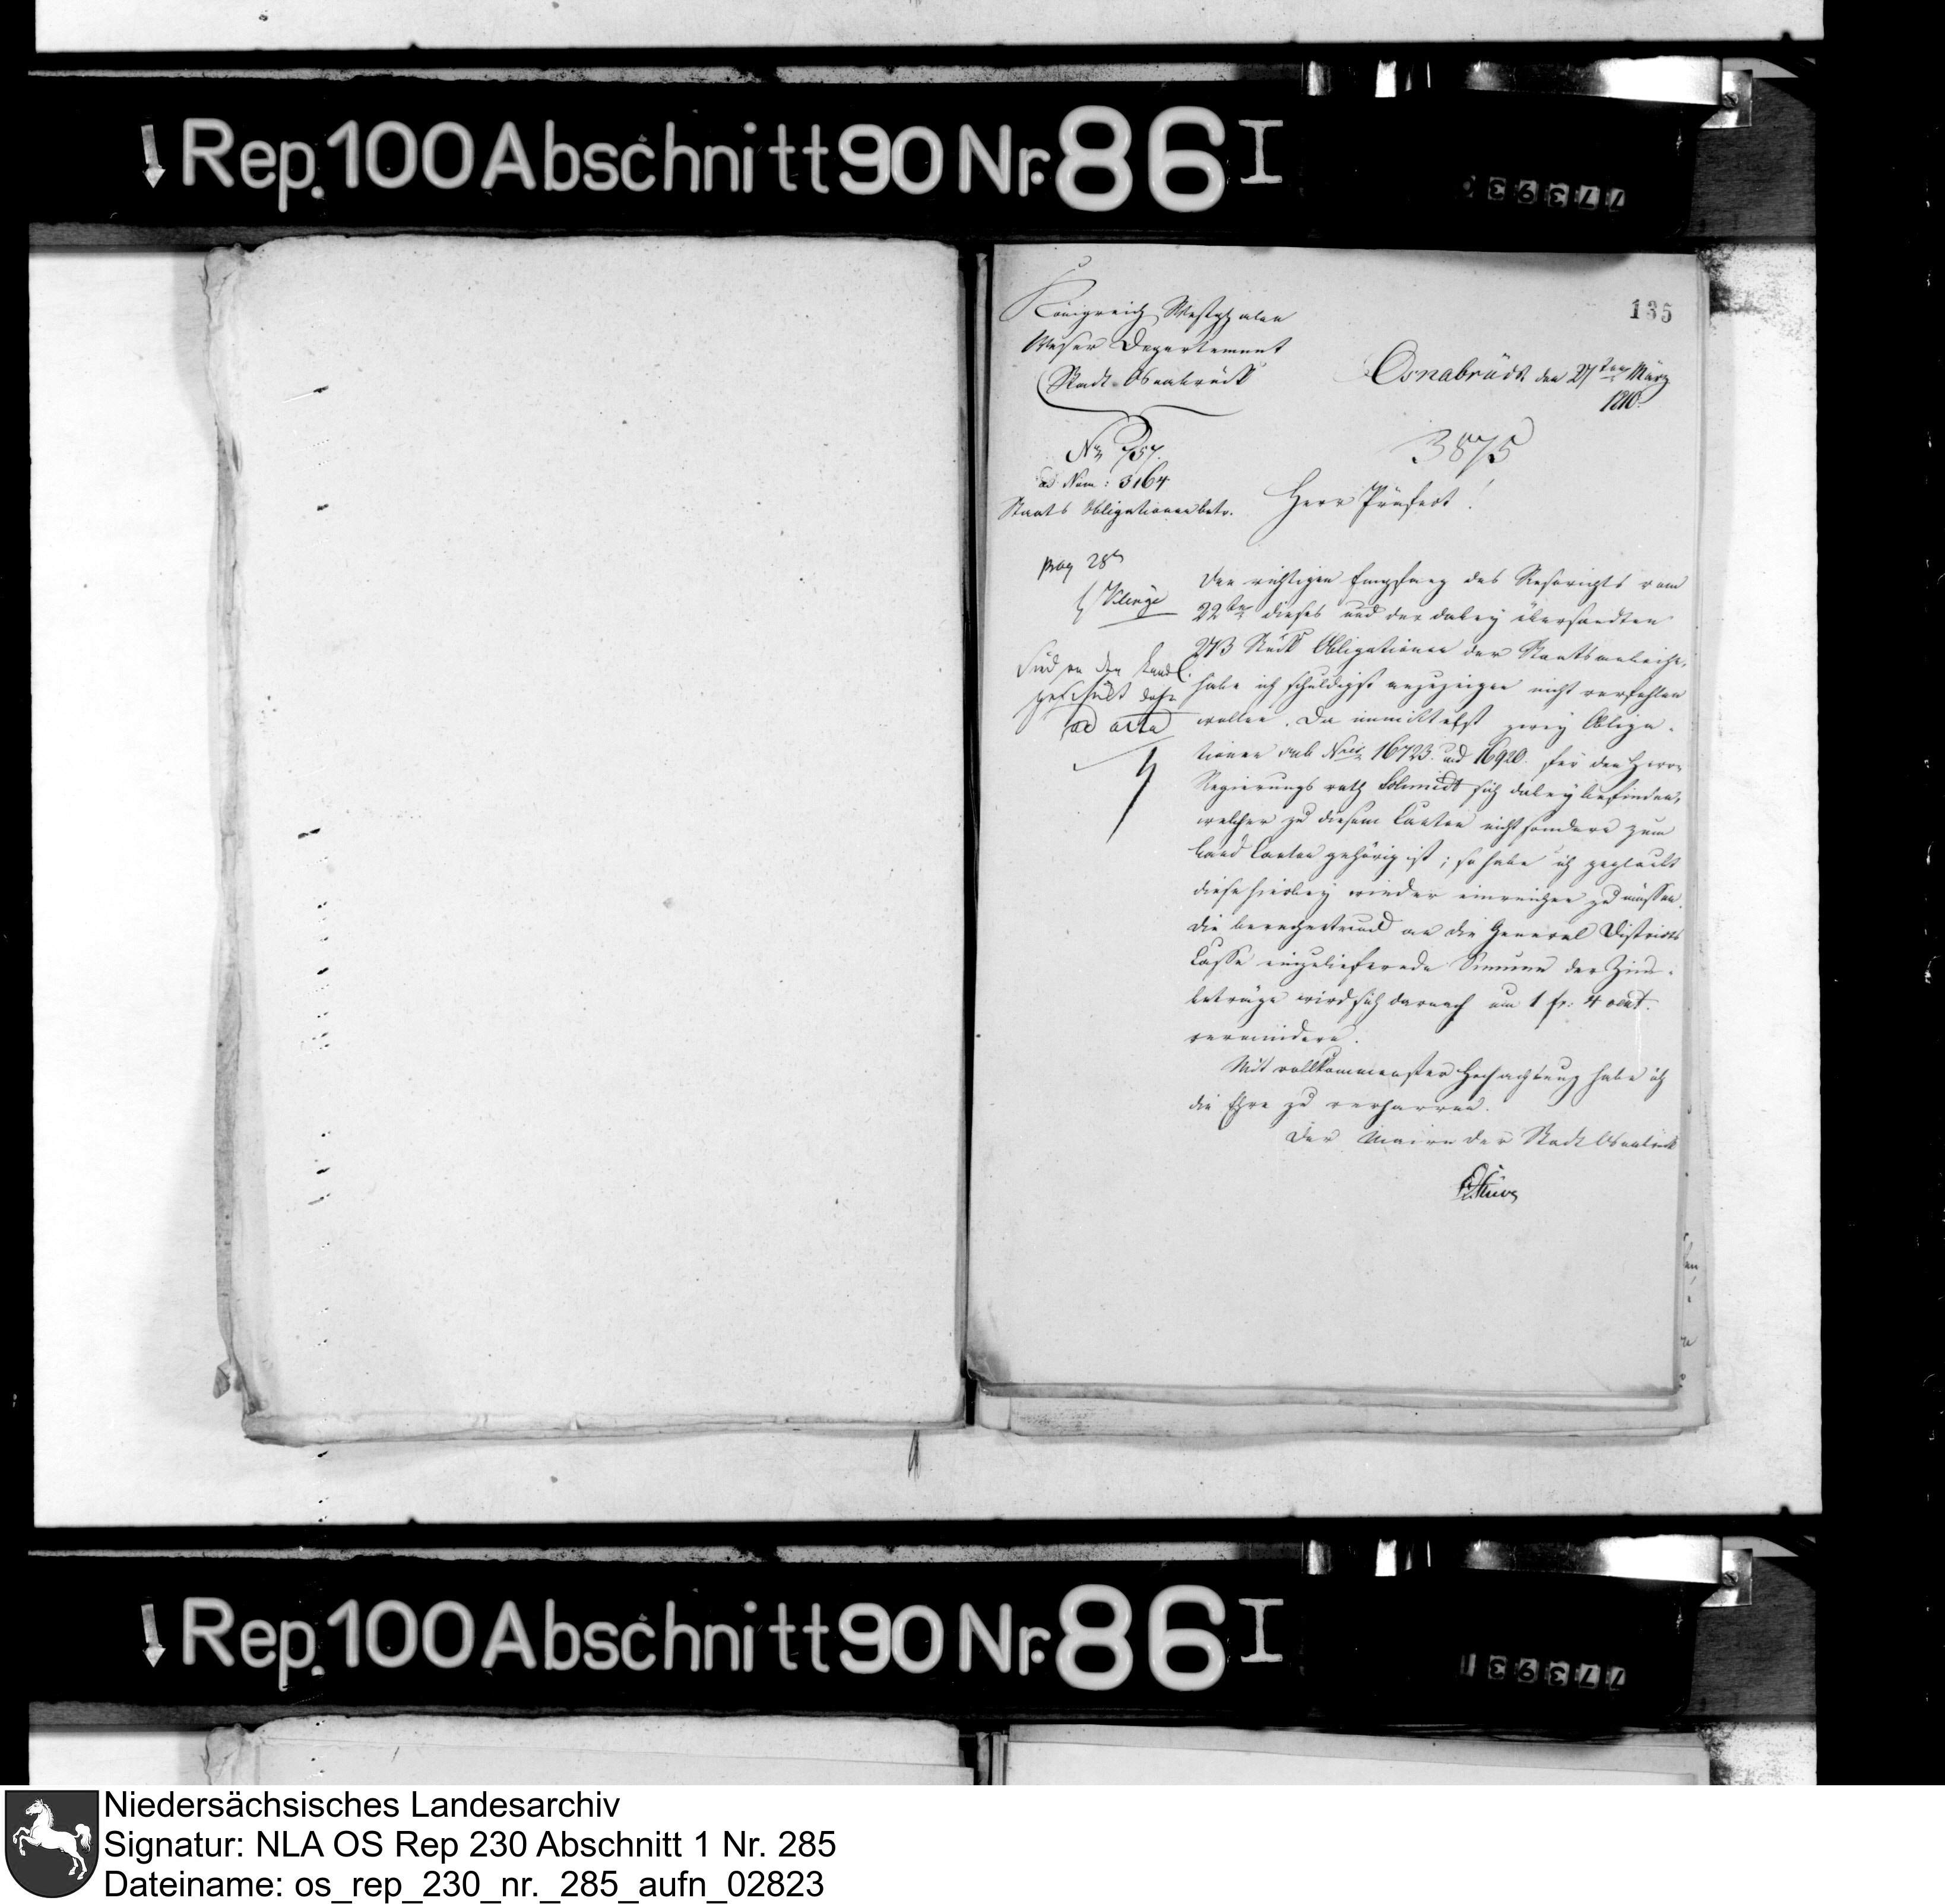 Rep. 100 Abschnitt 90 Nr. 86 I
773930
135
Königreich Westphalen
Weser Departement
Stadt Osnabrück
Osnabrück den 27ten März
1810.
No 757.
3875
ad Num: 3164
Staats Obligationen betr.
Herr Präfect!
28
Den richtigen Empfang des Rescripts vom
22ten dieses und der dabey übersandten
273 Stück Obligationen der Staatsanleihe,
habe ich schuldigst anzuzeigen nicht verfehlen
wollen. Da inmittelst zwey Obliga-
tionen sub Nris 16723. und 16920. für den Herrn
Regierungsrath Schmidt sich dabey befinden,
welcher zu diesem Canton nicht sondern zum
Land Canton gehörig ist; so habe ich geglaubt
diese hierbey wieder einreichen zu müssen.
Die berechnet und an die General Districts
Casse einzuliefernde Summe der Zins-
beträge wird sich darnach um 1 fr: 4 cent.
vermindern.
Mit vollkommenster Hochachtung habe ich
die Ehre zu verharren.
Der Maire der Stadt Osnabrück
Stüve
ad acta
Rep. 100 Abschnitt 90 Nr. 86 I
773931
Niedersächsisches Landesarchiv
Signatur: NLA OS Rep 230 Abschnitt 1 Nr. 285
Dateiname: os_rep_230_nr._285_aufn_02823